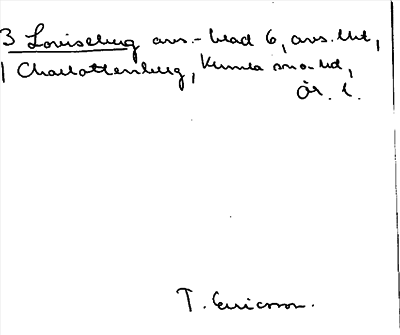 3 Louiseberg avs.- blad 6, avs. Utd,
1 Charlottenberg, Kumla sn o. hd,
Ör. l.
T. Ericsson.